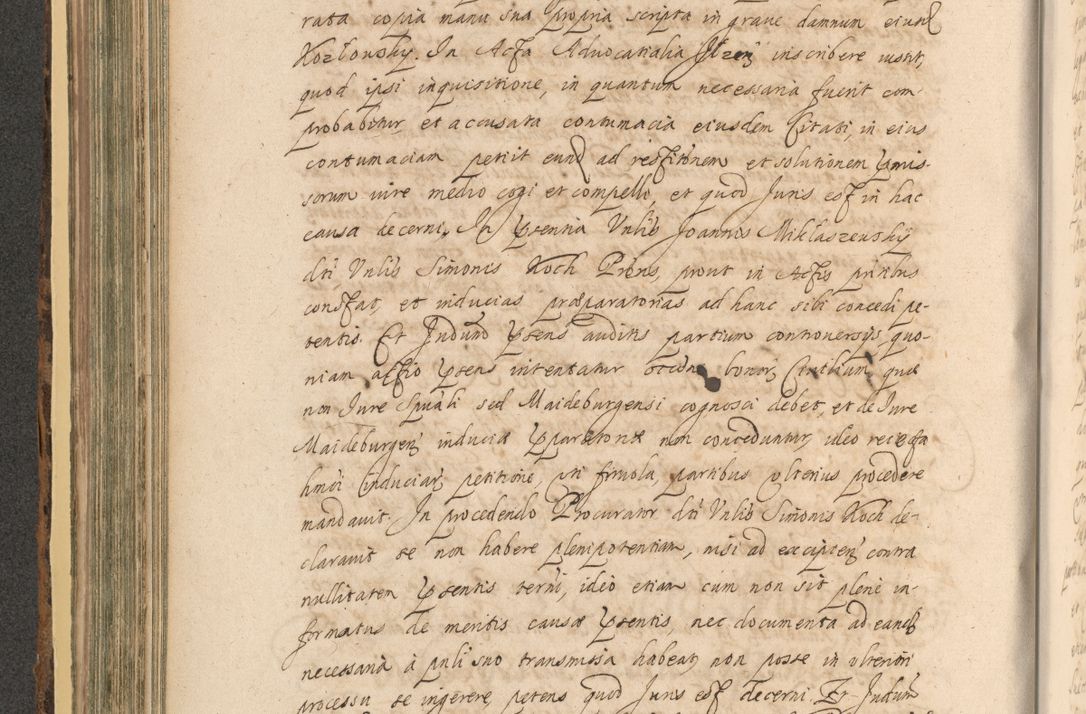 rata copia manu sua propria scripta in grave damnum eiusd
Kozłowsky. In Acta Advocatialia inscribere iussit,
quod ipsi inquisitione, in quantum necessaria fuerit com-
probabitur, et accusata contumacia eiusdem Citati, in eius
contumaciam petiit eund ad restitonem et solutionem pmis-
sorum iure medio cogi et compelli, et quod Juris est in hac
causa decerni. In pntia Vnlis Joannis Miklaszewsky
dti Vnlis Simonis Koch Prons, prout in Actis prioribus
constat, et inducias præparatorias ad hanc sibi concedi pe-
tentis. Et Judum psens auditis partium controversijs, quo-
niam actio psens intentatur bonor Civilium, quæ
non Jure Spuali sed Maideburgensi cognosci debet, et de Jure
Maideburgen induciæ pparatoriæ non conceduntur, ideo reiecta
hmoi induciar petitione, uti frivola, partibus vlterius procedere
mandavit. In procedendo Procurator dti Vnlis Simonis Koch de-
claravit se non habere plenipotentiam, nisi ad excipien contra
nullitatem psentis termi, ideo etiam cum non sit plene in-
formatus de meritis causæ psentis, nec documenta ad eand
necessaria à pnli suo transmissa habeat, non posse in vlteriori
processu se ingerere, petens quod Juris est decerni. Et Judum